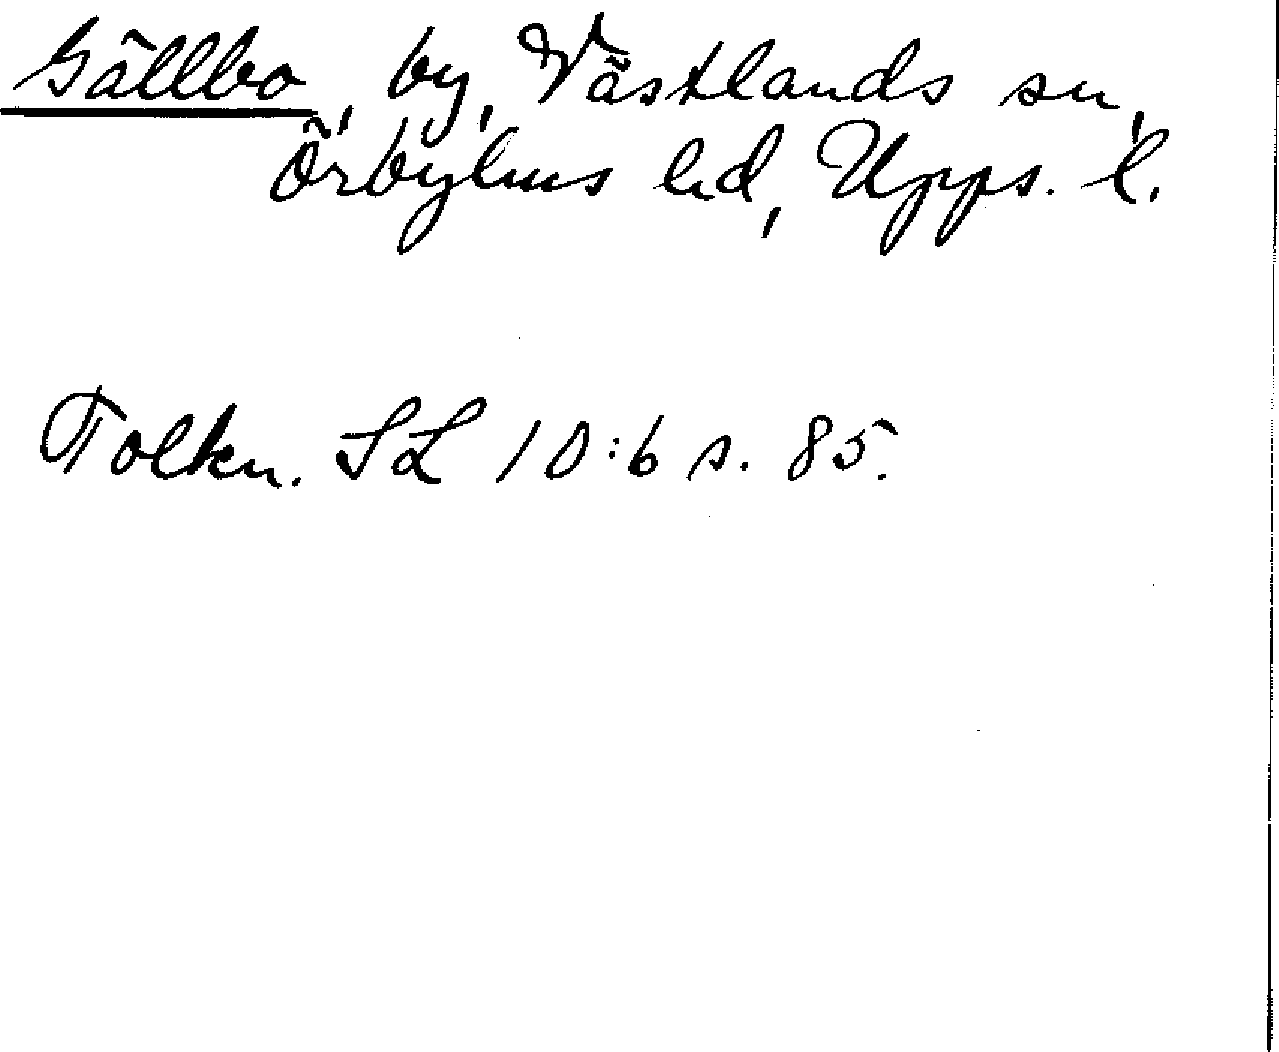 Gällbo, by, Västlands sn,
Örbyhus hd, Upps. l.
Folkn. SL 10:6 s. 85.